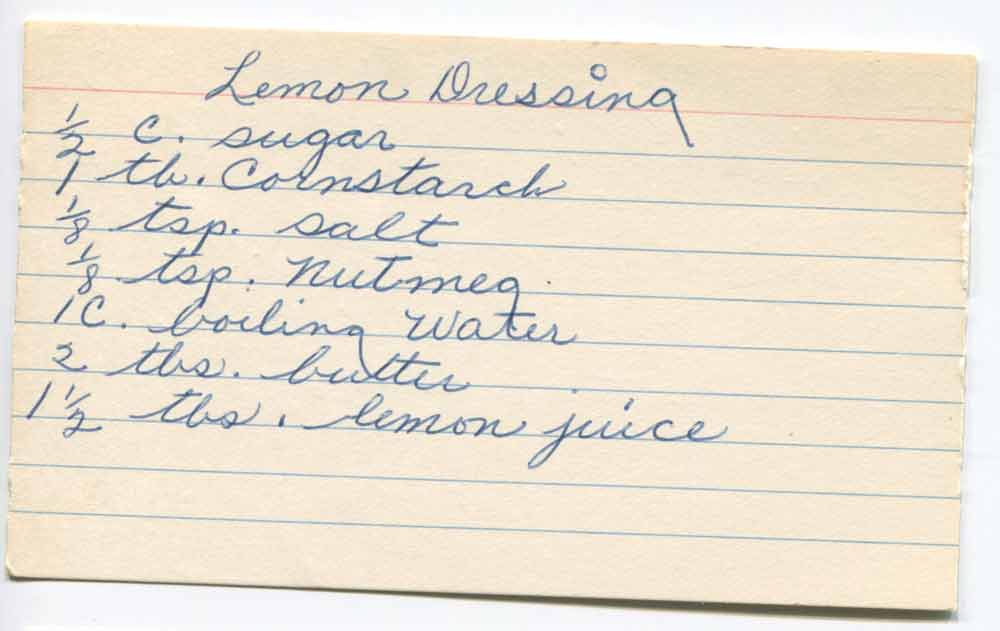 Lemon Dressing
½ c. sugar
1 tb. Cornstarch
⅛ tsp. salt
⅛ tsp. Nutmeg
1 C. boiling Water
2 tbs. butter
1 ½ tbs. lemon juice